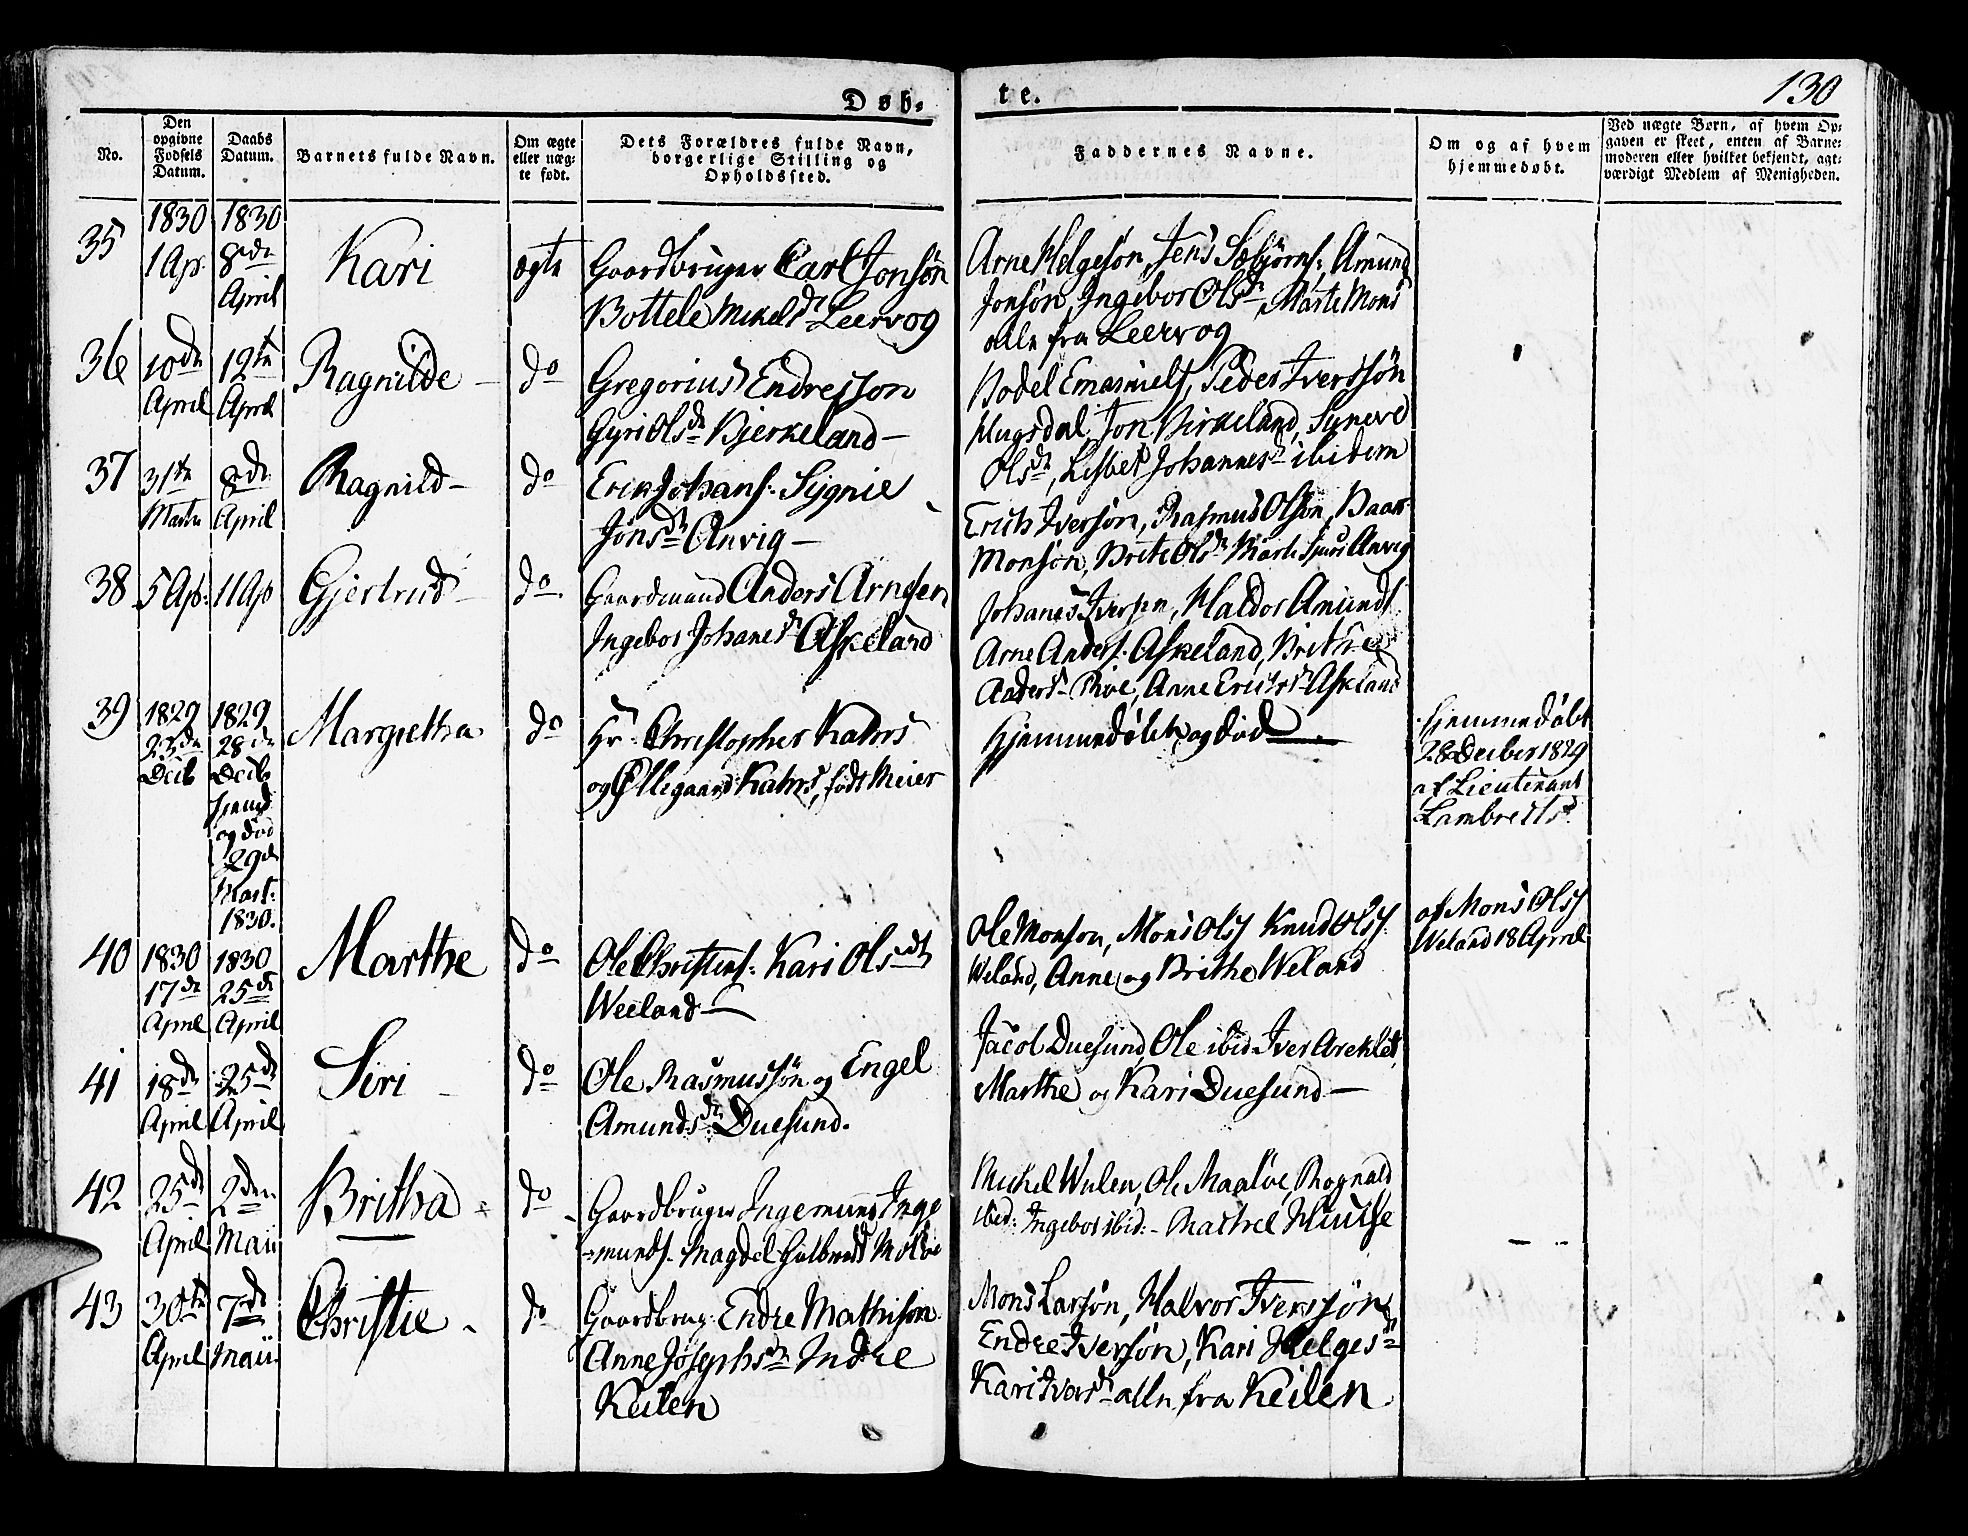 Døb-
te.
130
No.
Den opgivne Fødsels Datum.
Daabs Datum.
Barnets fulde Navn.
Om ægte eller uæg- te født.
Dets Forældres fulde Navn, borgerlige Stilling og Opholdssted.
Faddernes Navne.
Om og af hvem hjemmedøbt.
Ved uægte Børn, af hvem Op- gaven er skeet, enten af Barne- moderen eller hvilket bekjendt, agt- værdigt Medlem af Menigheden.
35
1830
1 Ap.
1830
8de
April
Kari
ægte
Gaardbruger Carl Jonsøn
Bottele Mikelsdr Leervog
Arne Helgesøn, Jens Sæbjørns: Amund
Jonsøn, Ingebor Olsdr, Marte Mons
alle fra Leervog
36
10de
April
12te
April
Ragnilde
do
Gregorius Endresson
Gyri Olsdr Bjerkeland
Bodel Emanuels, Peder Iversøn
Hugsdal, Jon Birkeland, Syneve
Olsdr, Lisbet Johannesdr ibidem
37
31te
Marts
8de
April
Ragnild
do
Erik Johans. Sygnie
Jonsdr Anvig
Erich Iversøn, Rasmus Olsøn, Baar
Monsøn, Brite Olsdr Marte Anvig
38
5 Ap:
11 Ap
Gjertrud
do
Gaardmand Anders Arnesen
Ingebor Johanesdr Askeland
Johanes Iversen, Haldor Amunds
Arne Anders. Askeland, Brithe
Andersdr Anne Ericsdr Askeland
39
1829
23de
Decb
1829
28de
Decb
hjemd
og død
29de
Mart.
1830.
Margretha
do
Hr. Christopher Kahrs
og Øllegaard Kahrs, født Meier
Hjemmedøbt og død
Hjemmedøbt
28 December 1829
af Lieutenant
Lambrechts
40
1830
17de
April
1830
25de
April
Marthe
do
Ole Christens: Kari Olsdr
Weeland
Ole Monson, Mons Olss Knud Olss
Weland, Anne og Brithe Weland
af Mons Olss
Weland 18 April
41
18de
April
25de
April
Siri
do
Ole Rasmussøn og Engel
Amundsdr Duesund.
Jacob Duesund, Ole ibid Iver
Marthe og Kari Duesund
42
25de
April
2den
Maii
Britha
do
Gaardbruger Ingemund Inge
munds. Magdel
Mickel Wulen, Ole Rognald
ibid: Ingebor ibid:
43
30te
April
7de
Maii
Christie
do
Gaardbrug. Endre Mathison
Anne Josephsdr Indre
Keilen
Mons Larsøn, Halvor Iversøn
Endre Iversøn, Kari Helgesdr
Kari Iversdr alle fra Keilen